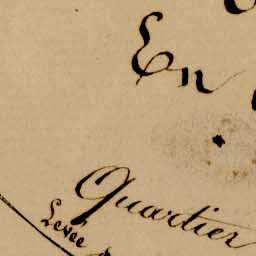 En
Quartier
Levée